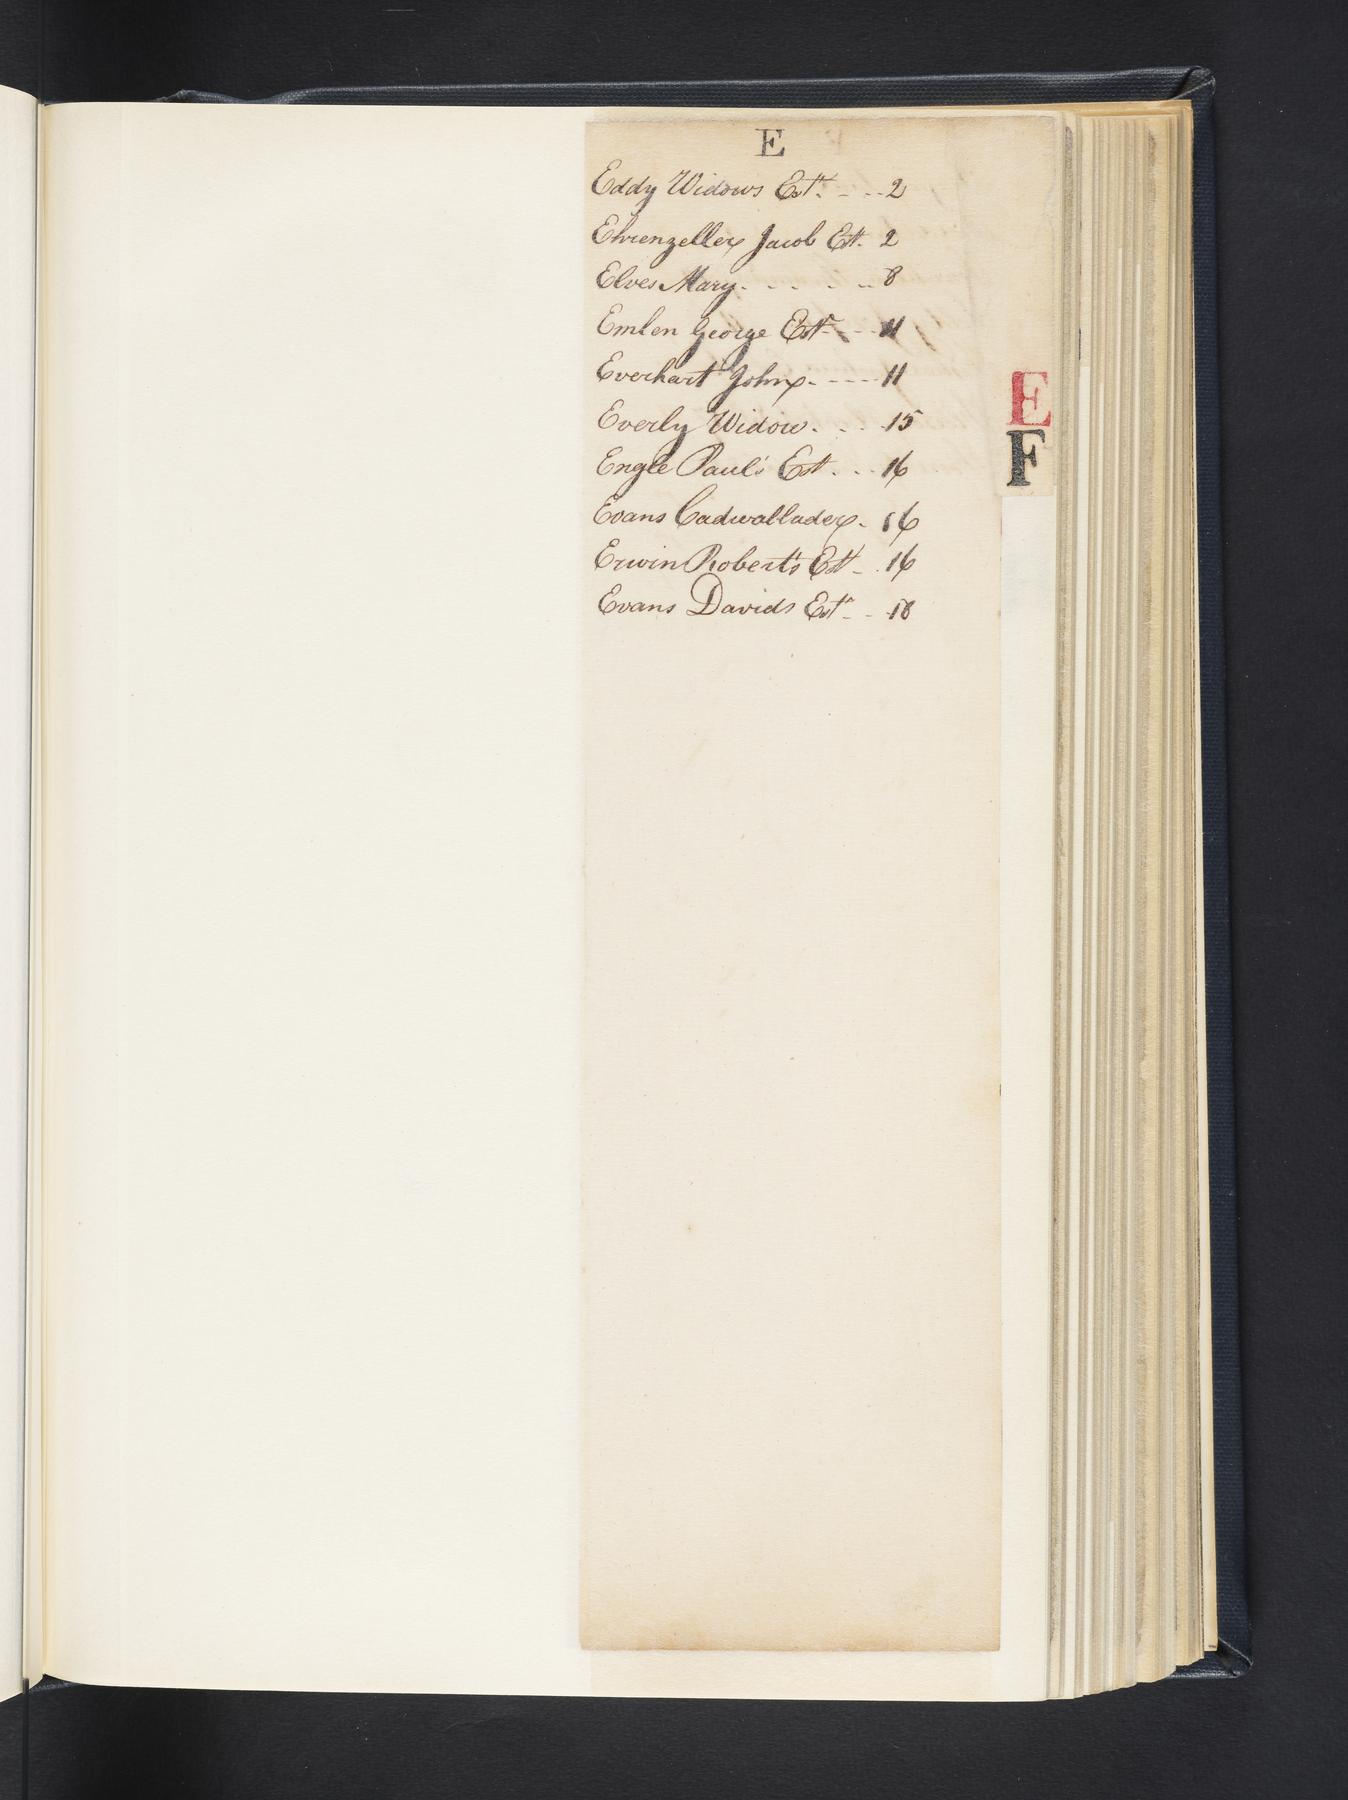 E
Eddy Widows Est. - - - 2
Ehrenzeller Jacob Est. 2
Elves Mary. - - - - - 8
Emlen George Est. - - - 11
Everhart John. - - - - 11
Everly Widow. - - - 15
Engle Paul's Est. - - 16
Evans Cadwallader. 16
Erwin Robert's Est - 16
Evans Davids Est. - - 18
E
F